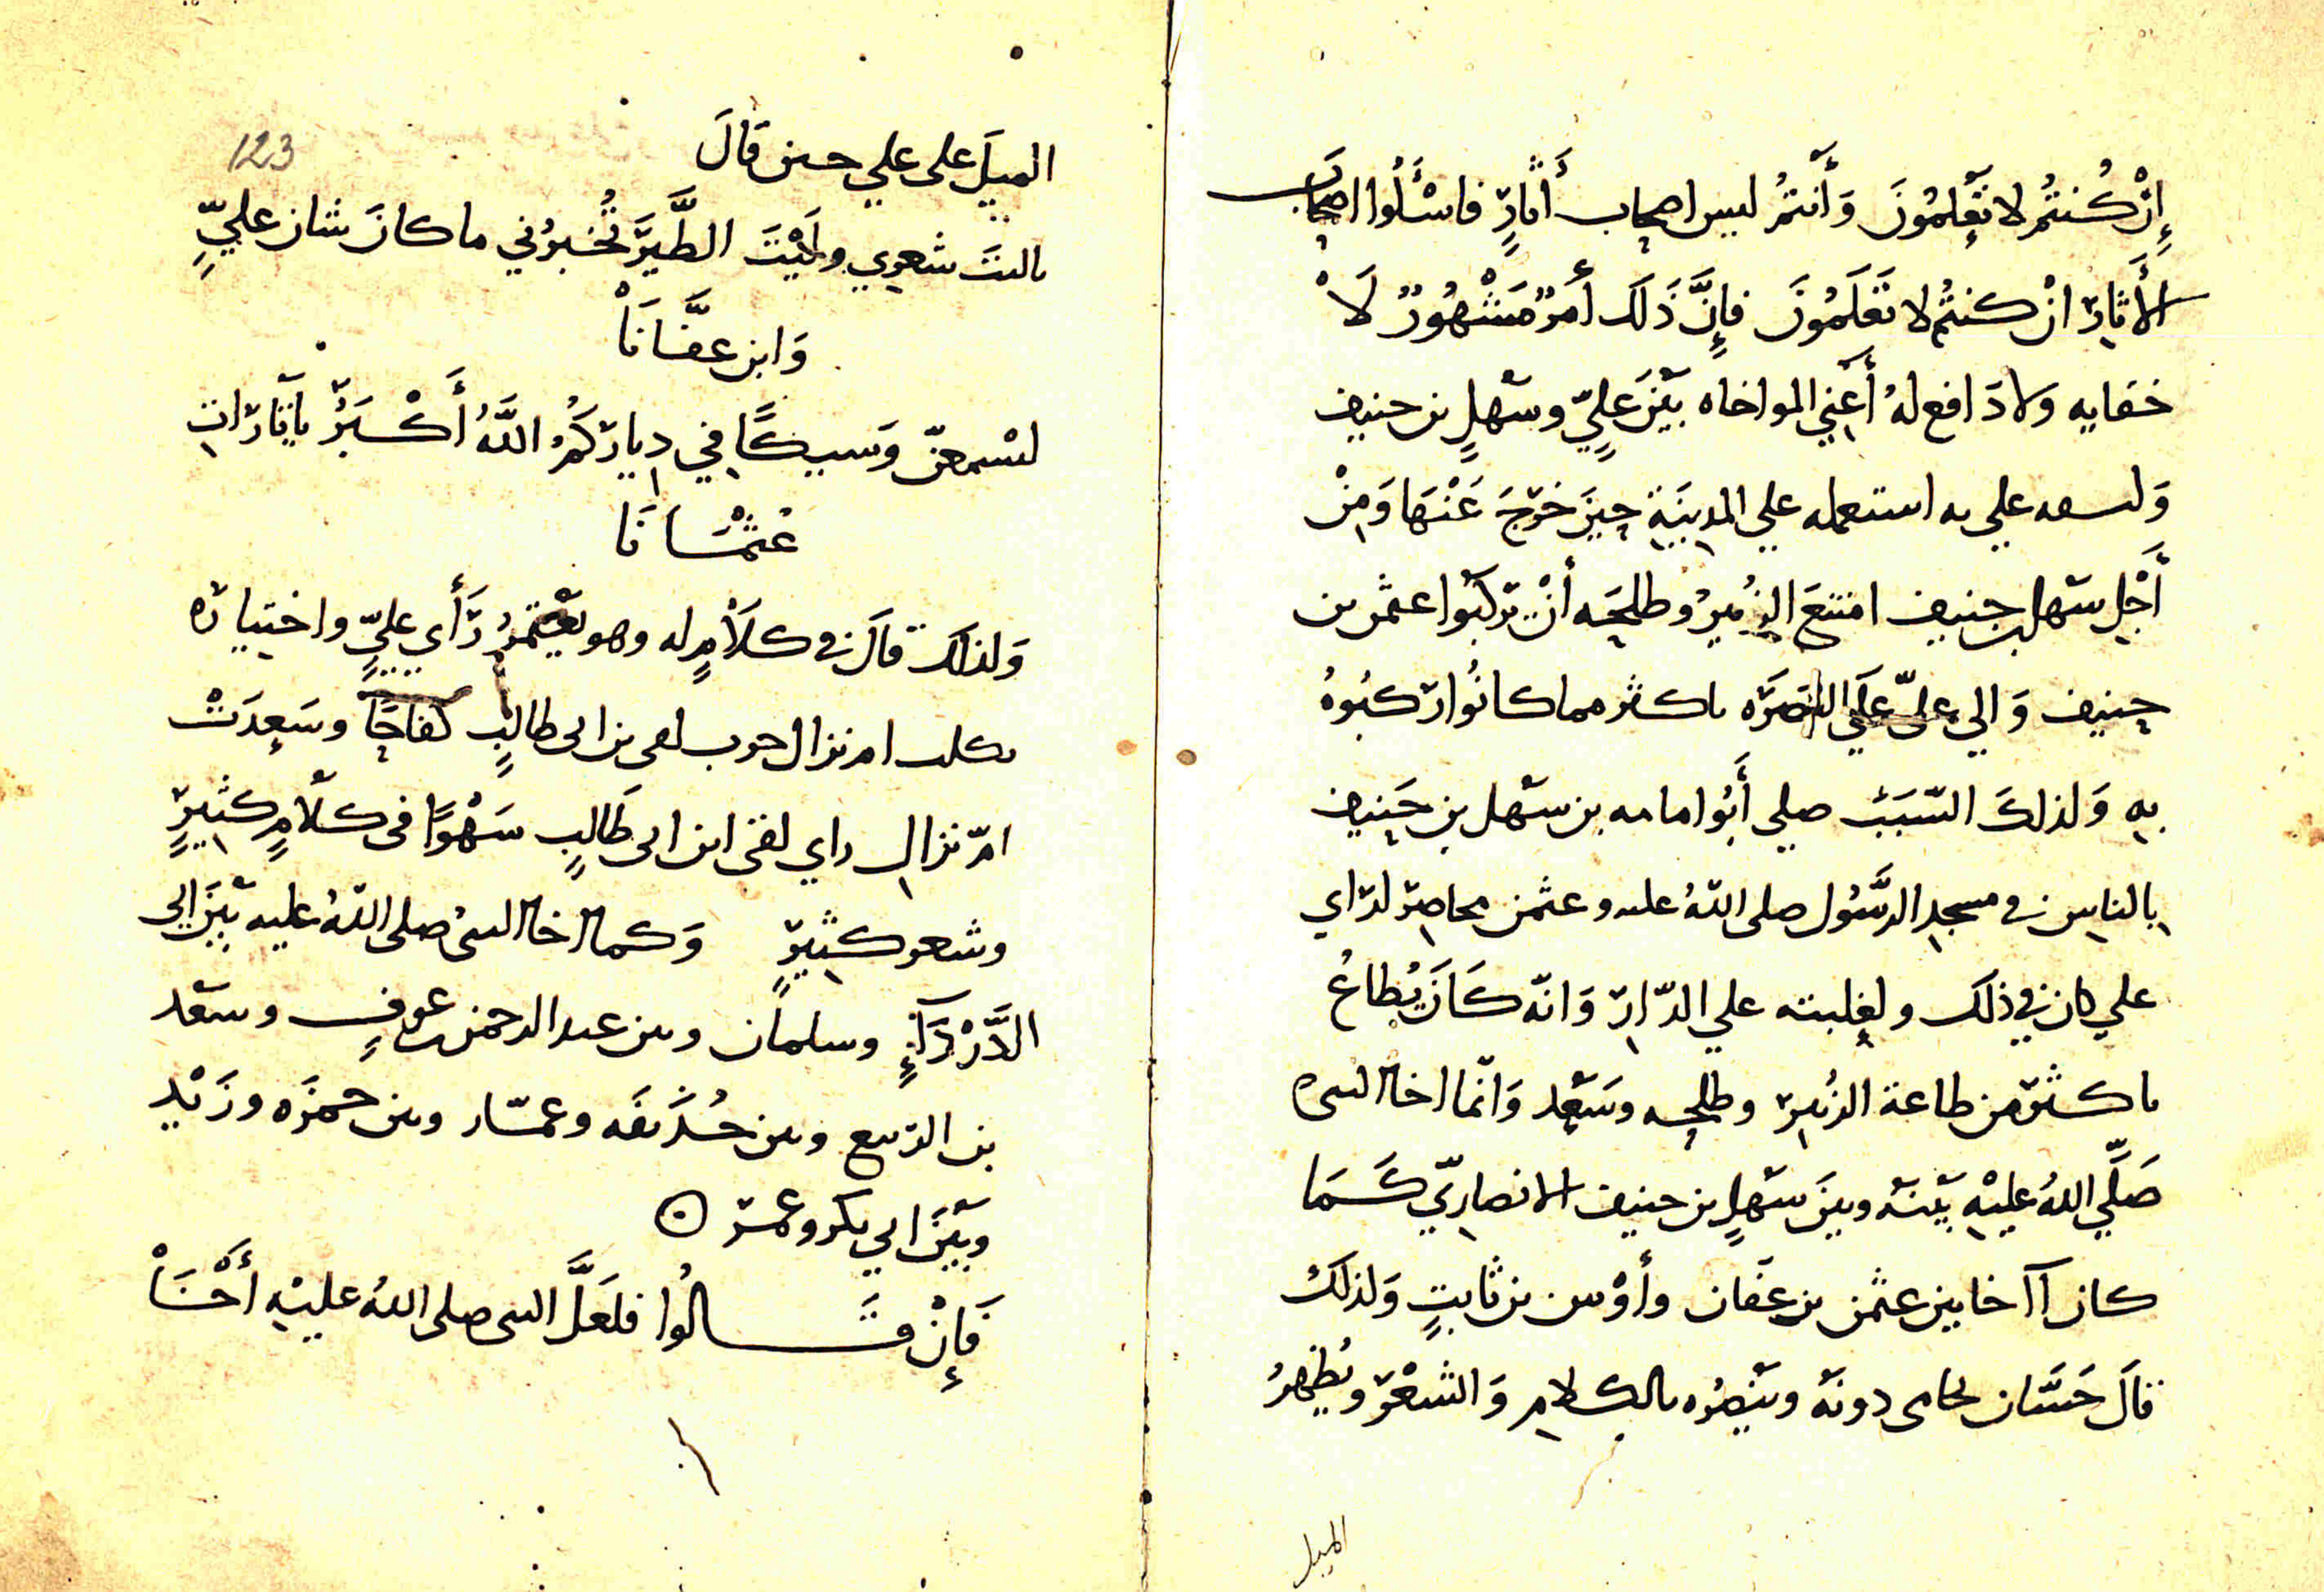 إِنْ كُنتُم لا تَعْلمُونَ وَأَنتمُ ليس اصحاب أَثارٍ فاسْأَلُوا اصحَابَ
الأَثارِ انْ كنتُم لا تَعْلَمُونَ فإِنَّ ذَلكَ أَمرٌ مَشْهُورٌ لَا
خفايه ولا دَافع لهُ أَعْني المواخاه بَيْنَ عَلِيّ وسَهْلٍ بن حنيف
وَلـ على به استعمله علي المدِينَةِ حِينَ خرَجَ عَنْهَا وَمِنْ
أَجْلِ سَهْل بن حنيف امتنعَ الزُبيرُ وطلحَه أَنْ يَركَبُوا عثمن بن
حنيف وَالي عليّ عَلَي البصَرَه باكثر مما كانُوا رَكبُوهُ
بهِ وَلذلكَ السَّبَبْ صلى أَبُوا مامه بن سَهْل بن حَنِيف
بِالناسِ في مسجدِ الرَّسُول صلى اللهُ عليه وعثمن محاصِر لرَاي
علي كان في ذلكَ ولغلبته علي الدّارِ وَانّه كَانَ يُطاعُ
باكثرَ من طاعة الزُبيرِ وطلحه وسَعْدٍ وَانّما اخا النبى
صَلَّي اللهُ عليْهِ بَيْنَه وبينَ سَهْلٍ بن حنيف الانصارِيّ كَمَا
كان آ اخا بين عثمن بن عفَان وأَوْس بن ثابتٍ وَلذلكَ
قالَ حَسَّان يحامى دونَه وينْصُره بالكلامِ وَالشعْرِ ويُظهِرُ
الميل
123
الميلَ على علي حين قَالَ
يا ليتَ شعري وليْتَ الطَّيرَ تُخبرُني ما كانَ شان عليٍّ
وَابن عفَّانَا
لتسْمعنّ وَشيكًا في دِيارِكمُ اللَّهُ أَكْبَرُ يا ثَارَاتِ
عُثْمَانَا
وَلذلكَ قالَ في كلَامٍ له وهو يعْتمدُ رَأي عليٍّ واختيارَه
ثكلت ام نزال حرب لقى بن ابى طالبٍ كفاحًا وسَعِدَتْ
امّ نزال راي لقى ابن ابى طَالبٍ سَهْوًا فى كلَامٍ كثِيرٍ
وشعر كثِيرٍ وَكما اخا النبىُ صلى اللهُ عليه بَيْنَ ابى
الدَّرْدَآءِ وسلمان وبين عبد الرحمن بن عوفٍ وسَعْد
بن الرّبيع وبين حُذَيفَه وعمّار وبين حمزَه وزَيْدٍ
وبَيْنَ ابي بكر وعمَر
فَإِنْ قَالُوا فلعَلَّ النبى صلى اللهُ عليْهِ أَخَاْ